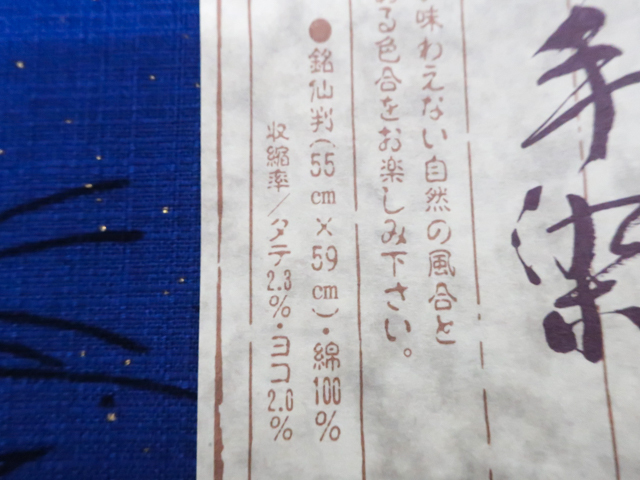 手染
味わえない自然の風合と
る色合をお楽しみ下さい。
●銘仙判(55cm×59cm)・綿100%
収縮率/タテ2.3%・ヨコ2.0%